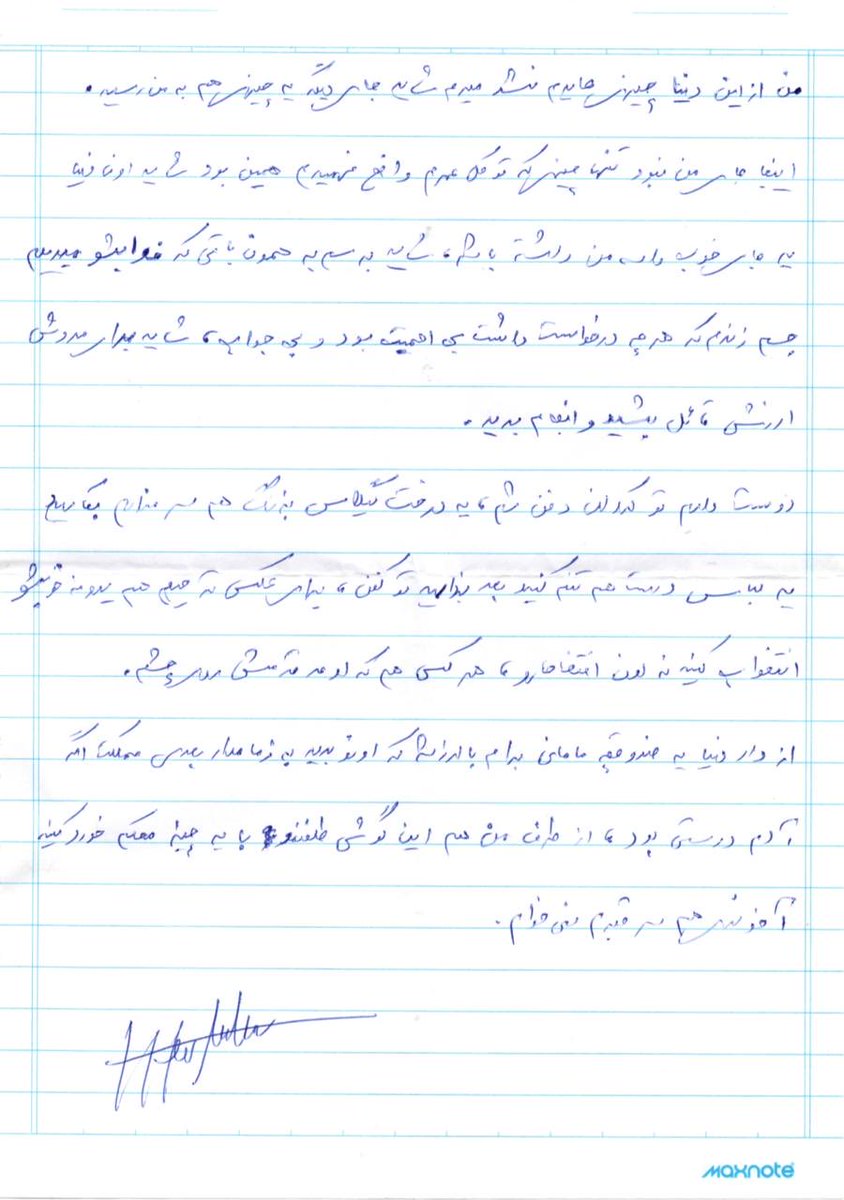 من از این دنیا چیزی عایدم نشد میرم شاید جای دیگه یه چیزی هم به من رسید.
اینجا جای من نبود تنها چیزی که تو کل عمرم واضح فهمیدم همین بود شاید اون دنیا
یه جای خوب واسه من داشته باشه، شاید برسم به همون باغی که خوابشو میدیدم
جسم زندم که هر چه درخواست داشت بی اهمیت بود و بی جواب، شاید برای مردش
ارزش قائل بشید و انجام بدید.
دوست دارم تو کردلان دفن شم، یه درخت گیلاس بزرگ هم سر مزارم بکارید
یه لباس درست هم تنم کنید بعد بذارید تو کفن، برای عکس ترحیم هم یدونه خوبشو
انتخاب کنید نه اون افتضاحارو، هر کسی هم که اومد قدمش روی چشم.
از دار دنیا یه صندوقچه مامانی برام با ارزشه که اونو بدید به زمامدار بعدی مملکت اگه
آدم درستی بود، از طرف من هم این گوشی تلفنو با یه چیز محکم خورد کنید
آخوند هم سر قبرم نمی خوام.
maxnote